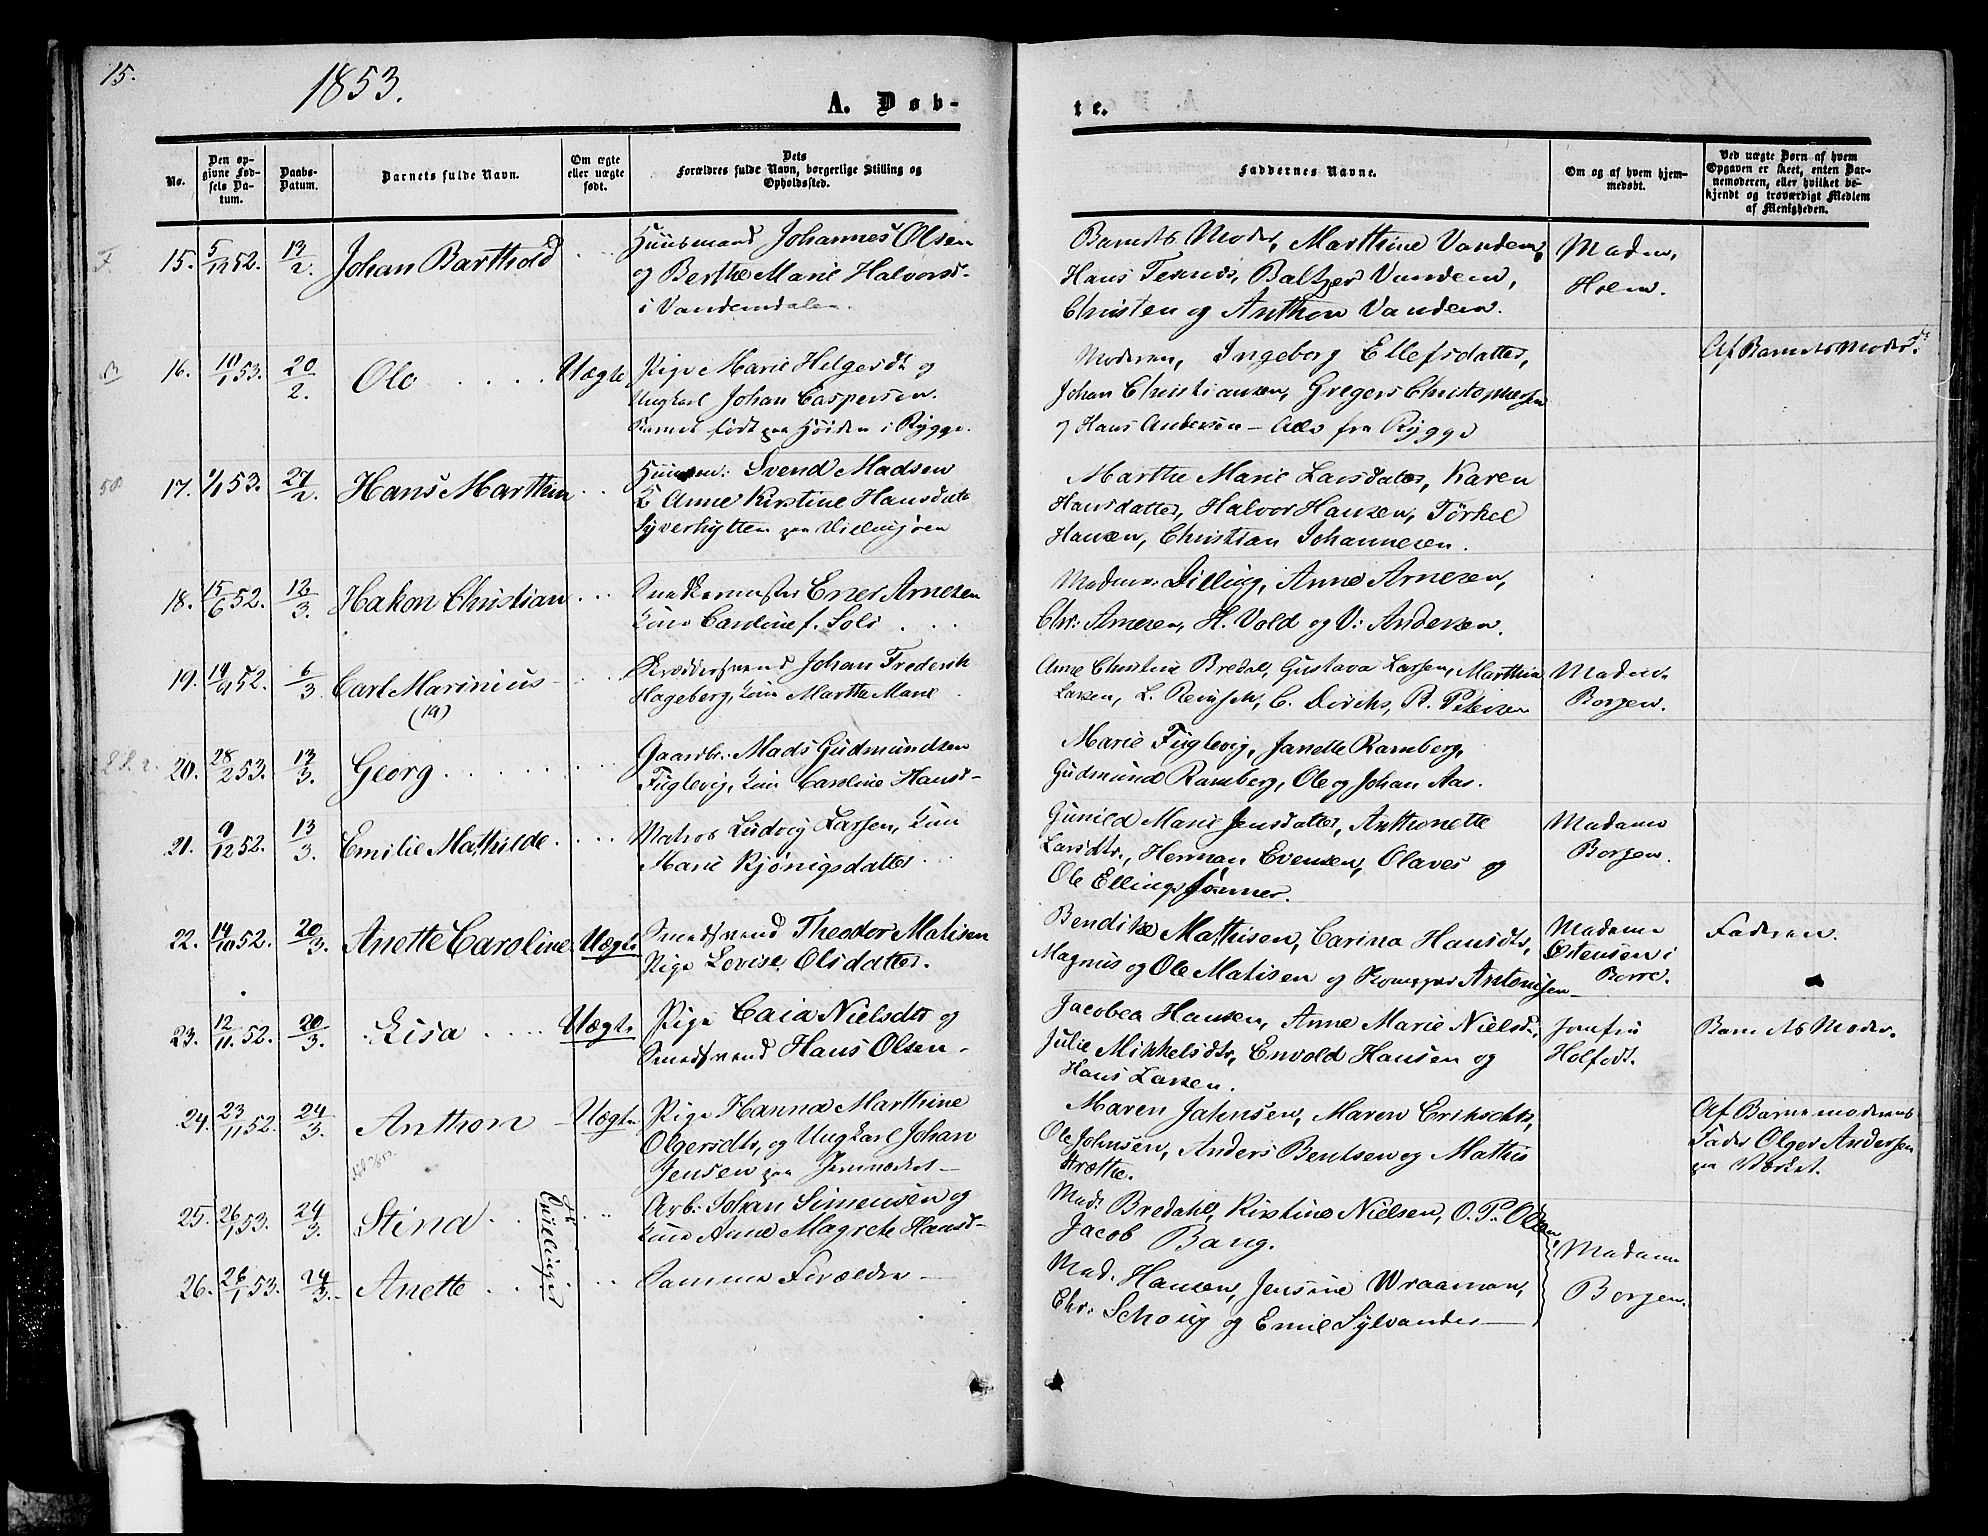 15.
1853.
A. Døb-
te.
No.
Den op-
givne Fød-
sels Da-
tum.
Daabs-
Datum.
Barnets fulde Navn.
Om ægte
eller uægte
født.
Dets
Forældres fulde Navn, borgerlige Stilling og
Opholdssted.
Faddernes Navne.
Om og af hvem hjem-
medøbt.
Ved uægte Børn af hvem
Opgaven er skeet, enten Bar-
nemoderen, eller hvilket be-
kjendt og troværdigt Medlem
af Menigheden.
15. 5/12 52. 13/2. Johan Barthold
Huusmand Johannes Olsen
og Berthe Marie Halvorsd-
i Vandemdalen.
Barnets Moder, Marthine Vandem,
Hans Baltzer Vandem,
Christen og Anthon Vandem.
Madm.
Holm.
16. 10/1 53. 20/2. Ole Uægte
Pige Marie Helgesdt og
Ungkarl Johan Caspersen.
Barnet født paa Høiden i Rygge.
Moderen, Ingeborg Ellefsdatter,
Johan Christiansen, Gregers Christophersen
og Hans Andersen - Alle fra Rygge
Af Barnets Moder.
17. 1/1 53. 27/2. Hans Marthin
Huusm: Svend Madsen
& Anne Kirstine Hansdatt
Syverhytten paa
Marthe Marie Larsdatter, Karen
Hansdatter, Halvor Hansen, Tørkel
Hansen, Christian Johannesen.
18. 15/6 52. 12/3. Hakon Christian
Snedkermester Ener Arnesen
Kone Caroline f. Soli
Madame Dilling, Anne Arnesen,
Chr: Arnesen, H. Vold og V: Andersen.
19. 14/9 52. 6/3. Carl Marinius
(19)
Johan Frederik
Hageberg, Kone Marthe Marie
Anne Christine Bredal, Gustava Larsen, Marthin
Larsen, L. C. Dirichs, P. Petersen
Madame
Borgen.
20. 28/2 53. 13/3. Georg
Gaardbr: Mads Gudmundsen
Fuglevig, Kone Caroline Hansd-
Marie Fuglevig, Janette Ramberg,
Gudmund Ramberg, Ole og Johan Aas.
21. 9/12 52. 13/3. Emilie Mathilde
Matros Ludvig Larsen, Kone
Marie Kjønigsdatter
Gunild Marie Jensdatter, Anthonette
Larsdtr, Herman Evensen, Olaves og
Ole Ellings Sønner.
Madame
Borgen.
22. 14/10 52. 20/3. Anette Caroline Uægte
Smedsvend Theodor Matisen
Pige Lovise Olsdatter.
Bendikte Mathisen, Carina Hansdtr,
Magnus og Ole Matisen og Antonisen
Madame
Østensen i
Borre.
Faderen.
23. 12/11 52. 20/3. Lisa Uægte
Pige Caia Nielsdtr og
Smedsvend Hans Olsen.
Jacobea Hansen, Anne Marie Nielsd,
Julie Mikkelsdtr, Envold Hansen og
Hans Larsen.
Jomfru
Holfodt.
Barnets Moder.
24. 23/11 52. 24/3. Anthon Uægte
Pige Hanna Marthine
Olgersdtr, og Ungkarl Johan
Jensen paa
Maren Jahnsen, Maren Eriksdtr,
Ole Johnsen, Anders Bentsen og Mathis
Strætke.
Af Barnemoderens
Fader Olger Andersen
paa Værket.
25. 26/1 53. 24/3. Stina
Tvillinger
Arb: Johan Simensen og
Kone Anne Magrete Hansd-
Mad: Bredahl, Kirstine Nielsen, O. P. Olsen,
Jacob Bang.
Madame
Borgen.
26. 26/1 53. 24/3. Anette
Samme Forældre
Mad. Hansen, Jensine Wraaman,
Chr: Schøug og Emil Sylvander